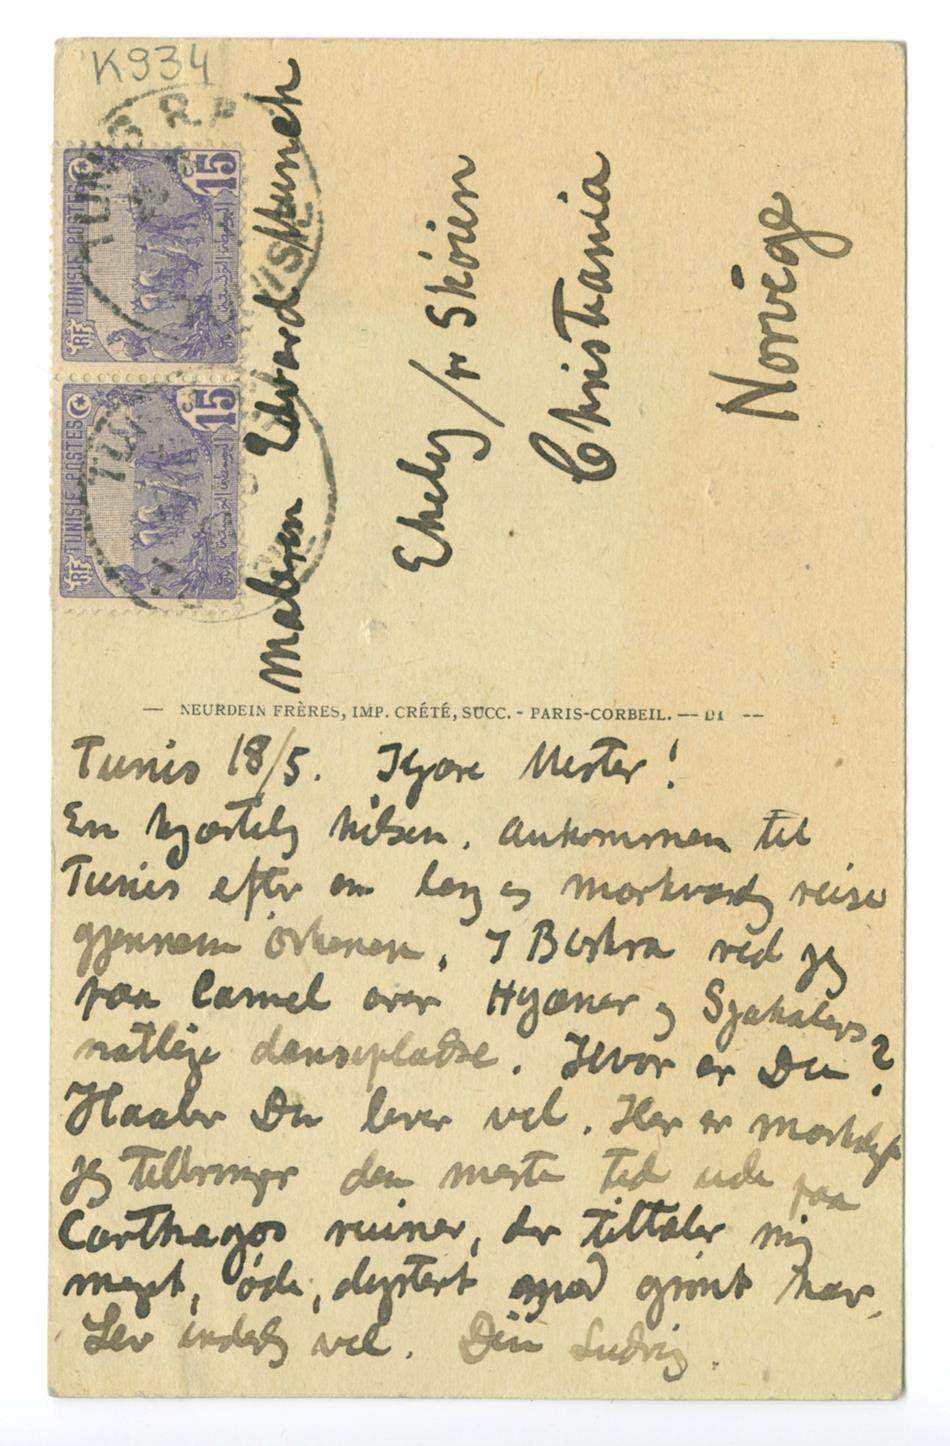 K934
TUNIS R.P.
TUNISIE POSTES
15
RF
TUNISIE POSTES
15
RF
Maleren Edvard Munch
Ekely / pr Skøien
Christiania
Norvége
— NEURDEIN FRÈRES, IMP. CRÉTÉ, SUCC. - PARIS-CORBEIL. —
Tunis 18/5. Kjære Mester!
En hjærtelig hilsen. Ankommen til
Tunis efter en lang og mærkværdig reise
gjennem ørkenen. I Biskra red jeg
paa Camel over Hyæner og Sjakalers
natlige dansepladse. Hvor er Du?
Haaber Du lever vel. Her er
jeg tilbringer den meste tid ude paa
Carthagos ruiner, der tiltaler mig
meget, øde, dystert med grønt hav.
Lev inderlig vel. Din Ludvig.